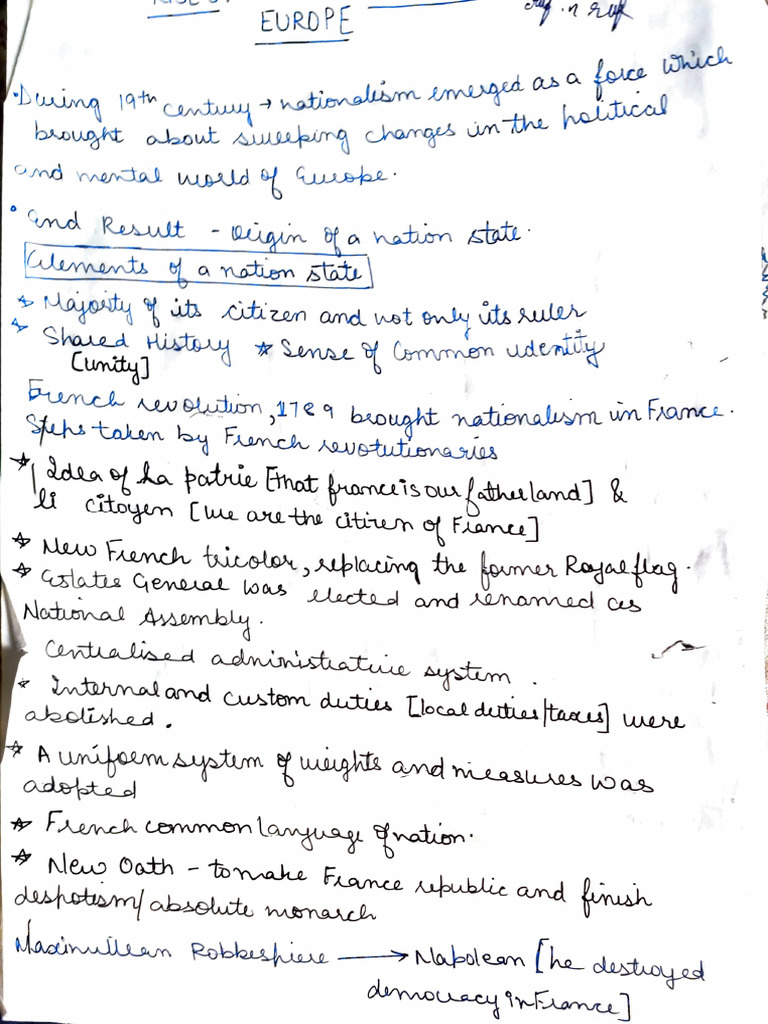 EUROPE
• During 19th century → nationalism emerged as a force which
brought about sweeping changes in the political
and mental world of Europe.
• End Result - Origin of a nation state.
Elements of a nation state
☆ Majority of its citizen and not only its ruler
☆ Shared History ☆ Sense of Common identity
[unity]
French revolution, 1789 brought nationalism in France.
Steps taken by French revolutionaries
☆ Idea of La patrie [that france is our fatherland] &
li citoyen [we are the citizen of France]
☆ New French tricolor, replacing the former Royal flag.
☆ Estates General was elected and renamed as
National Assembly.
Centralised administrative system.
☆ Internal and custom duties [local duties/taxes] were
abolished.
☆ A uniform system of weights and measures was
adopted
☆ French common language of nation.
☆ New Oath - to make France republic and finish
despotism/absolute monarch
Maximillean Robbespiere → Napolean [he destroyed
democracy in France]